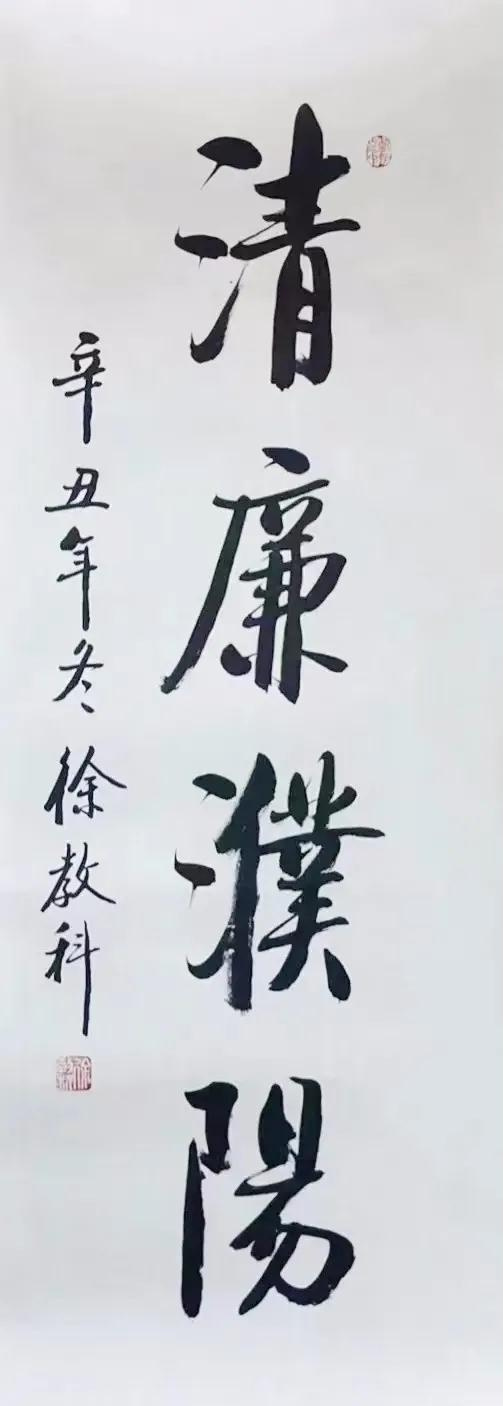 清廉濮陽
辛丑年冬徐教科